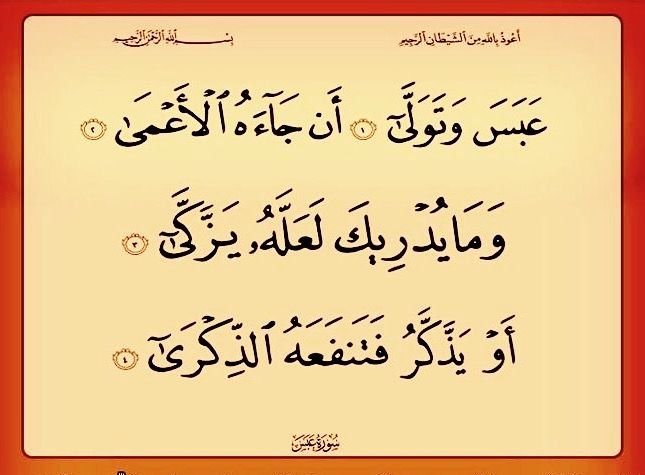 أعوذ بالله من الشيطان الرجيم بسم الله الرحمن الرحيم
عَبَسَ وَتَوَلَّىٰٓ ١ أَن جَآءَهُ ٱلْأَعْمَىٰ ٢
وَمَا يُدْرِيكَ لَعَلَّهُۥ يَزَّكَّىٰٓ ٣
أَوْ يَذَّكَّرُ فَتَنفَعَهُ ٱلذِّكْرَىٰٓ ٤
سُورَةُ عَبَسَ